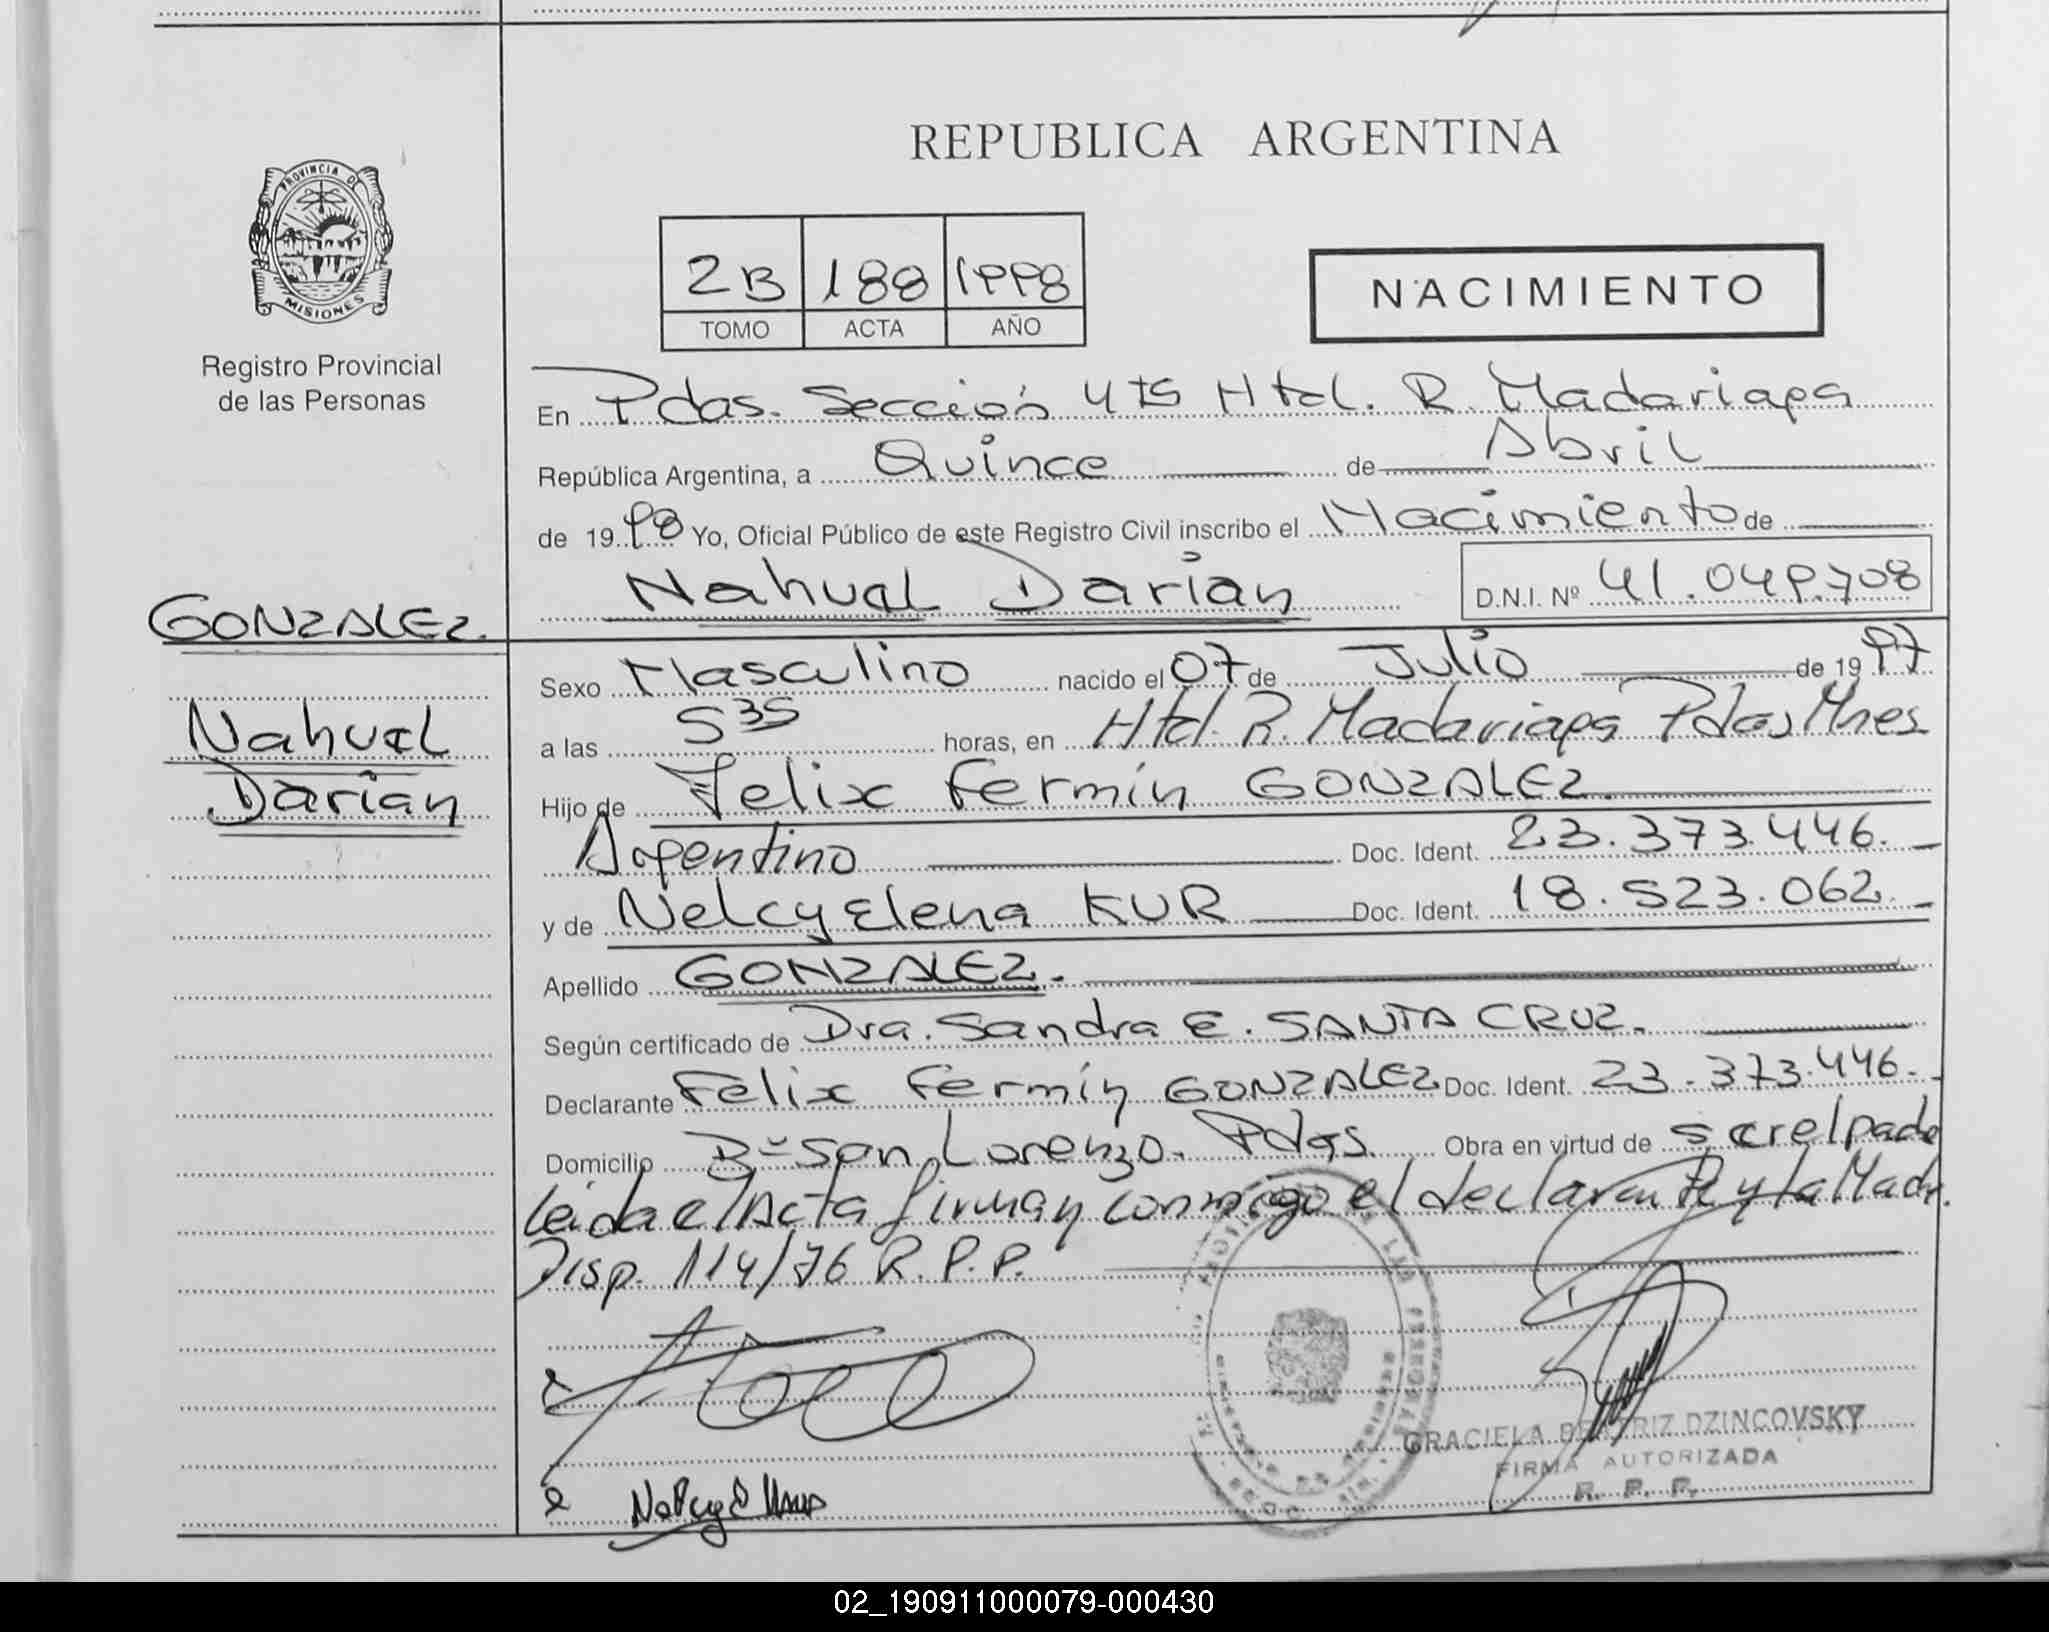 REPUBLICA ARGENTINA
PROVINCIA DE
MISIONES
Registro Provincial
de las Personas
2B 188 1998
TOMO ACTA AÑO
NACIMIENTO
En Pdas. Sección 4ta Htal. R. Madariaga
República Argentina, a Quince de Abril
de 1998 Yo, Oficial Público de este Registro Civil inscribo el Nacimiento de
Nahual Darian D.N.I. Nº 41.049.708
GONZALEZ
Nahual
Darian
Sexo Masculino nacido el 07 de Julio de 1997
a las 5 35 horas, en Htal. R. Madariaga Pdas Mnes
Hijo de Felix Fermín GONZALEZ
Argentino Doc. Ident. 23.373.446.
y de Nelcy Elena KUR Doc. Ident. 18.523.062.
Apellido GONZALEZ.
Según certificado de Dra. Sandra E. SANTA CRUZ.
Declarante Felix Fermín GONZALEZ Doc. Ident. 23.373.446.
Domicilio Bº San Lorenzo. Pdas. Obra en virtud de ser el padre
Leida el Acta firman conmigo el declarante y la Madr.
Disp. 114/76 R.P.P.
GRACIELA BEATRIZ DZINCOVSKY
FIRMA AUTORIZADA
R. P. P.
02_190911000079-000430